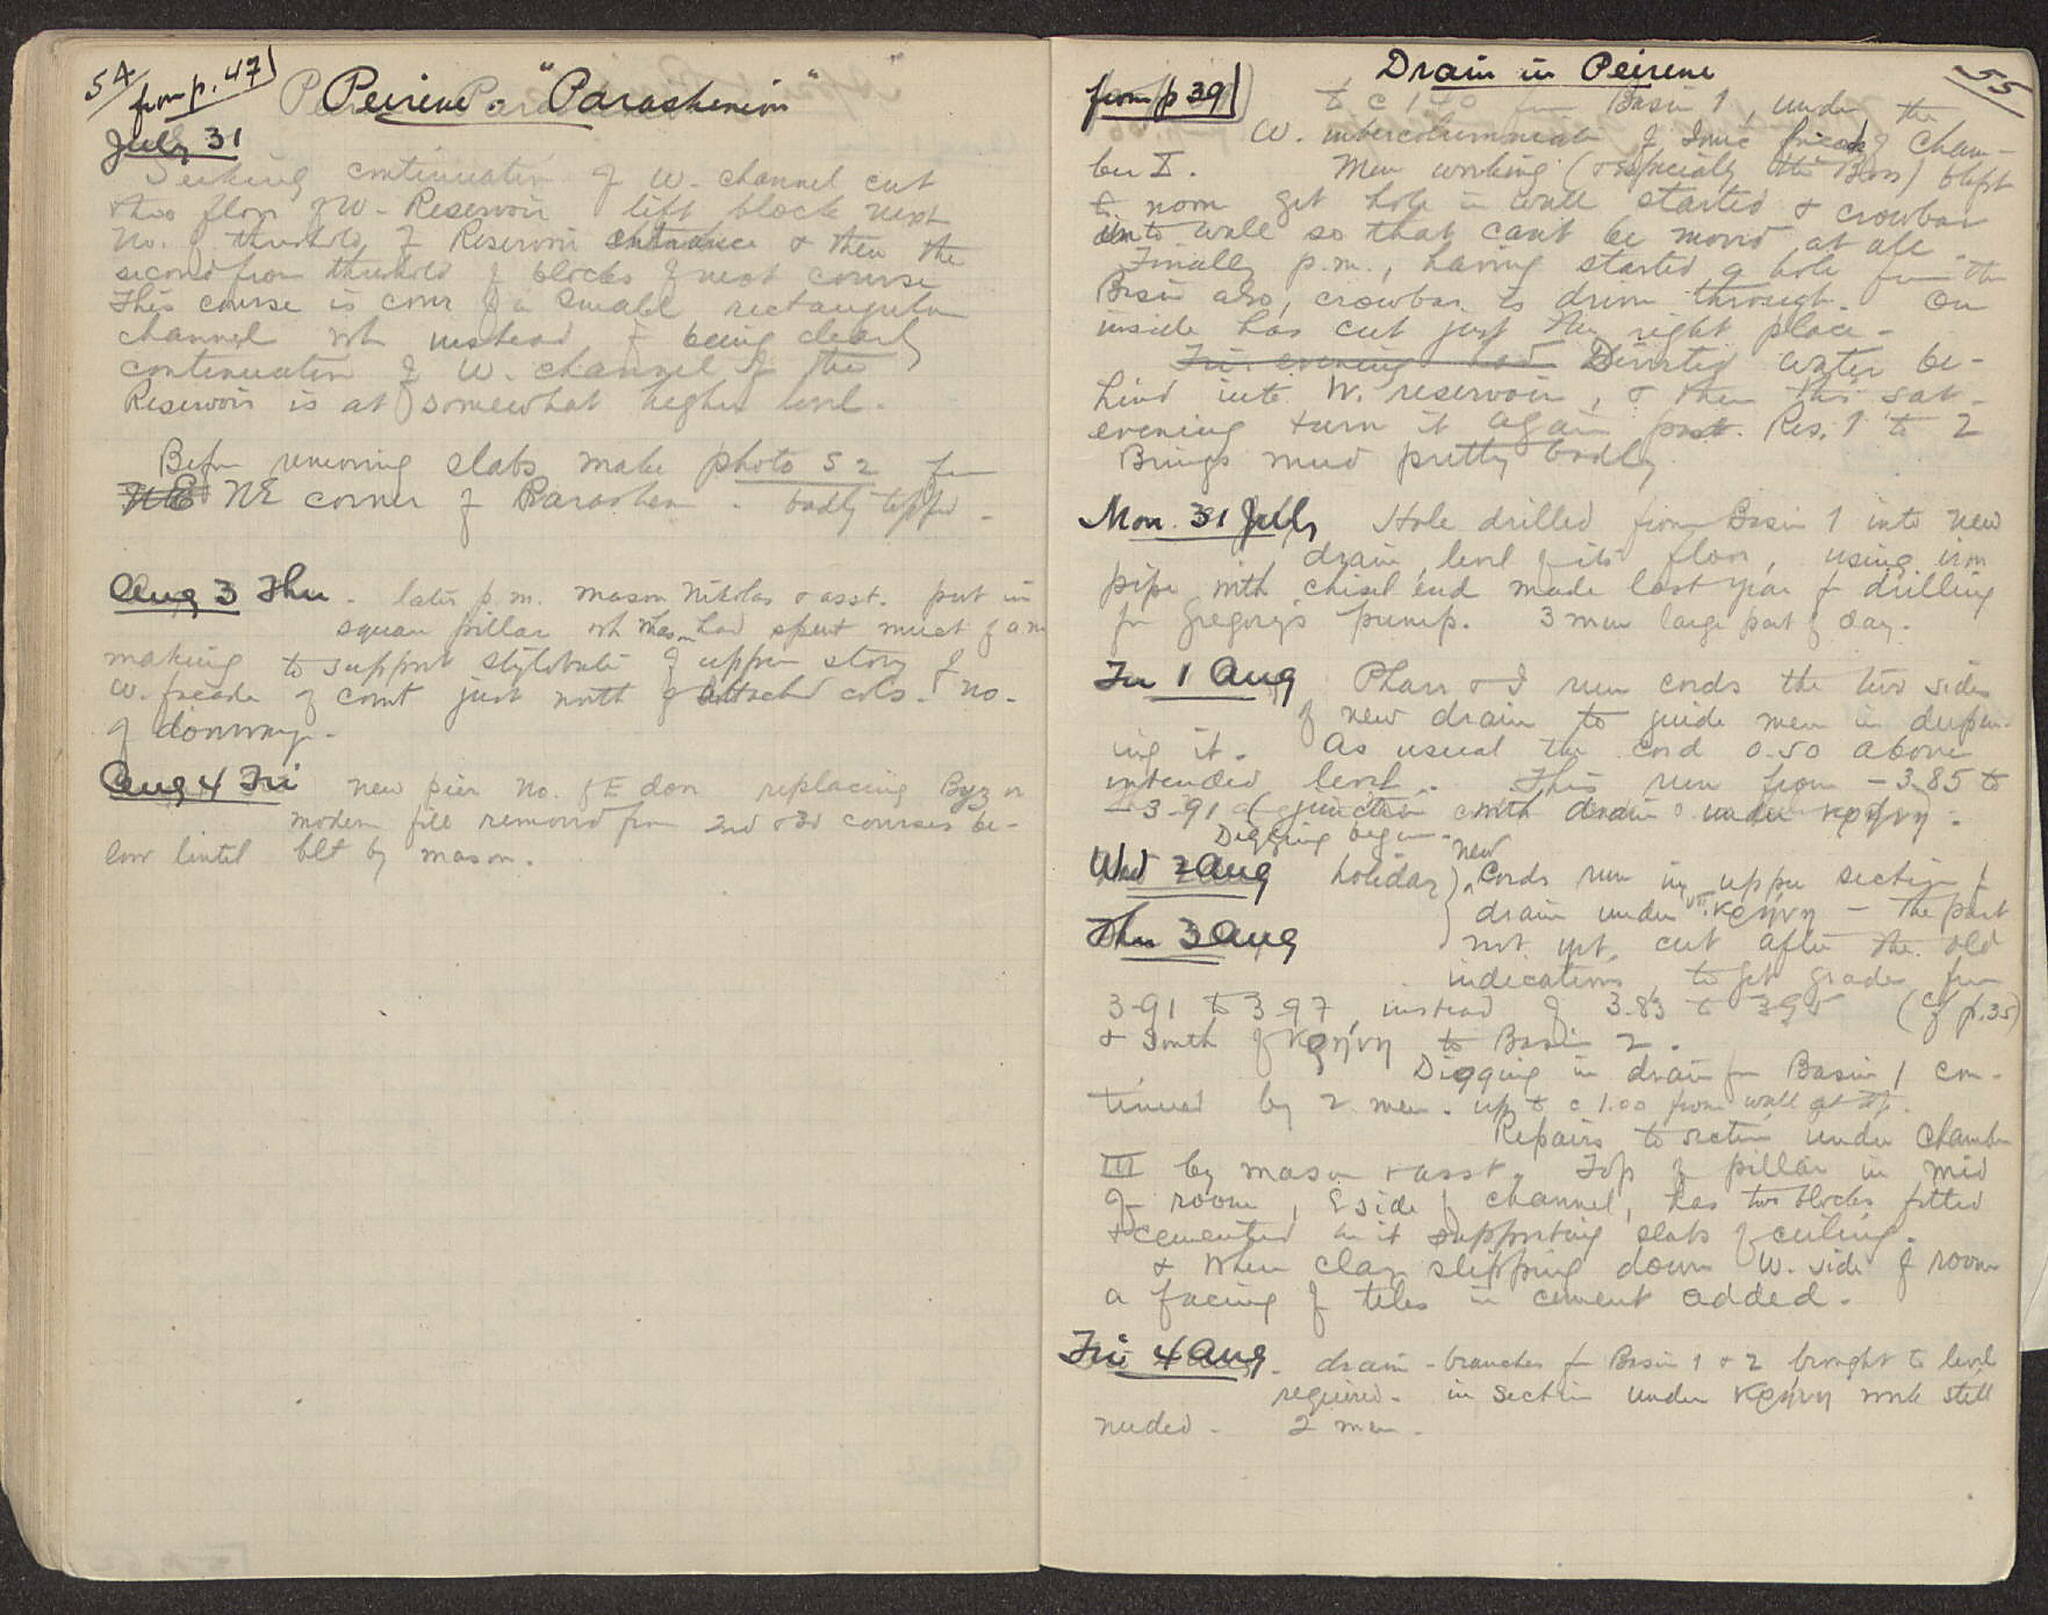 54
from p. 47)
Peirene. "Paraskenion"
July 31
Seeking continuation of W. channel cut
thro floor of W. Reservoir lift block next
No. of threshold of Reservoir entrance & then the
second from threshold of blocks of next course
This course is cover of a small rectangular
channel wh instead of being clearly
continuation of W. channel of the
Reservoir is at somewhat higher level.
Before removing slabs make photo 52 from
NE corner of Parasken. badly
Aug 3 Thu - later p.m. mason Nikolas & asst. put in
square pillar wh mason had spent much of a.m.
making to support stylobate of upper story of
W. facade of court just north of attached cols. & no.
of doorway.
Aug 4 Fri new pier No. of E door replacing Byz or
modern fill removed from 2nd & 3d courses be-
low lintel blt by mason.
Drain in Peirene
55
from p 39)
to c 1.40 from Basin 1, under the
W. intercolumniation of Ionic facade of Cham-
ber II. Men working (& especially the Boss)
to noon get hole in wall started & crowbar
into wall so that can't be moved at all.
Finally p.m., having started a hole from the
Basin also, crowbar is driven through. On
inside has cut just the right place.
Fri. evening had Diverted water be-
hind into W. reservoir, & then this Sat-
evening turn it again past Res. 1 to 2
Brings mud pretty badly.
Mon. 31 July Hole drilled from Basin 1 into new
drain, level of its floor, using iron
pipe with chisel end made last year for drilling
for Gregory's pump. 3 men large part of day.
Tu 1 Aug Pharr & I run cords the two sides
of new drain to guide men in deepen-
ing it. As usual the cord 0.50 above
intended level. This run from -3.85 to
-3.91 (junction with drain under κρήνη).
Digging begun.
Wed 2 Aug holiday
Thu 3 Aug
new
Cords run in upper section of
drain under κρήνη - the part
not yet cut after the old
indications to get grade from
3.91 to 3.97 instead of 3.83 to 3.95 (cf p.35)
& South of κρήνη to Basin 2.
Digging in drain from Basin 1 con-
tinued by 2 men. up to c 1.00 from wall at
Repairs to section under Chamber
III by mason & asst. Top of pillar in mid
of room, E side of channel, has two blocks fitted
& cemented on it supporting slabs of ceiling.
& where clay slipping down W. side of room
a facing of tiles in cement added.
Fri 4 Aug. drain - branches from Basin 1 & 2 brought to level
required. in section under κρήνη work still
needed. 2 men.